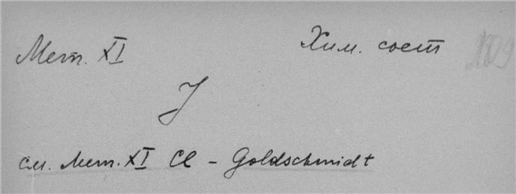 Мет. XI Хим. сост 109
J
см. Мет. XI Cl - Goldschmidt